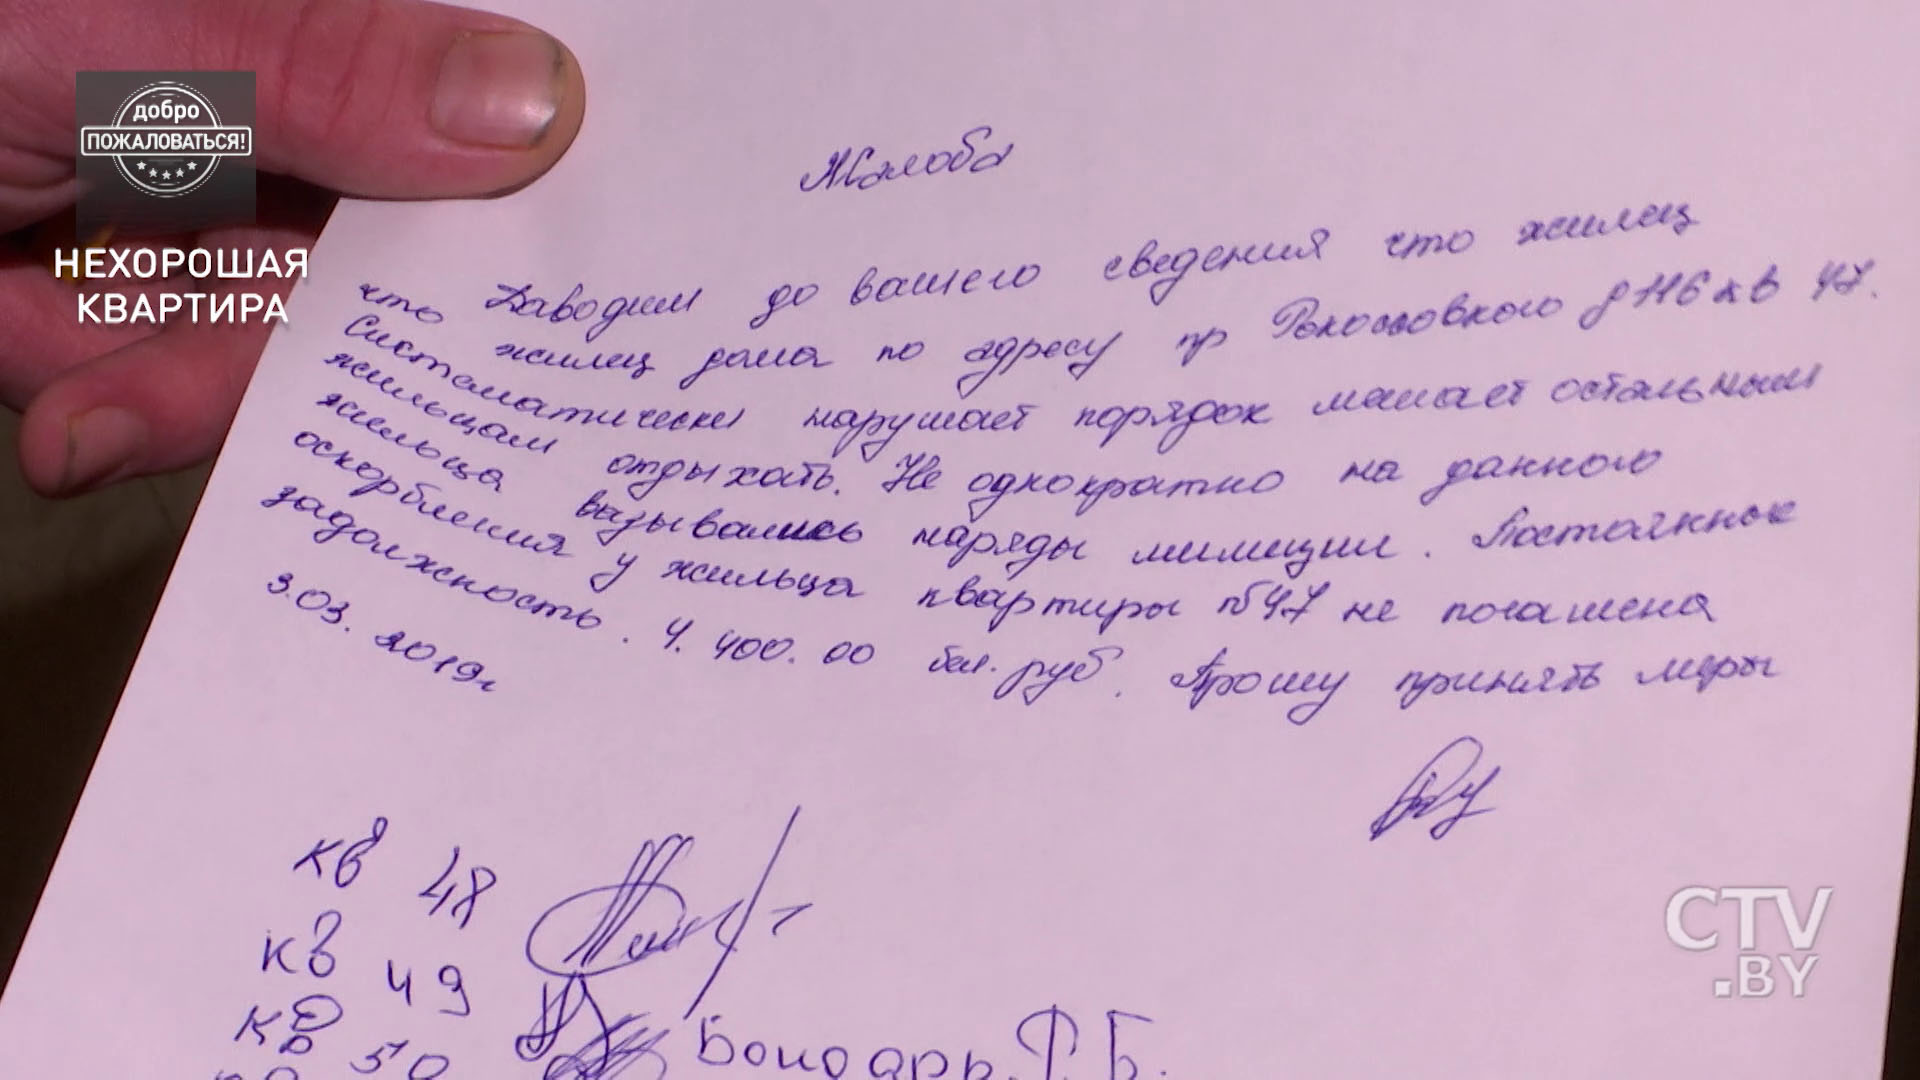 добро
ПОЖАЛОВАТЬСЯ!
НЕХОРОШАЯ
КВАРТИРА
Жалоба
Даводим до вашего сведения что жилец
что жилец дома по адресу пр Рокоссовкого д 116 кв 47.
Систематически нарушает порядок мешает остальным
жильцам отдыхать. Не однократно на данного
жильца вазывались наряды милиции. Постоянные
оскорбления у жильца квартиры №47 не погашена
задолжность. 4.400.00 бел. руб. Прошу принять меры
3.03.2019г
кв 48
кв 49
кв 50 Бондарь Г.Б.
CTV
.BY